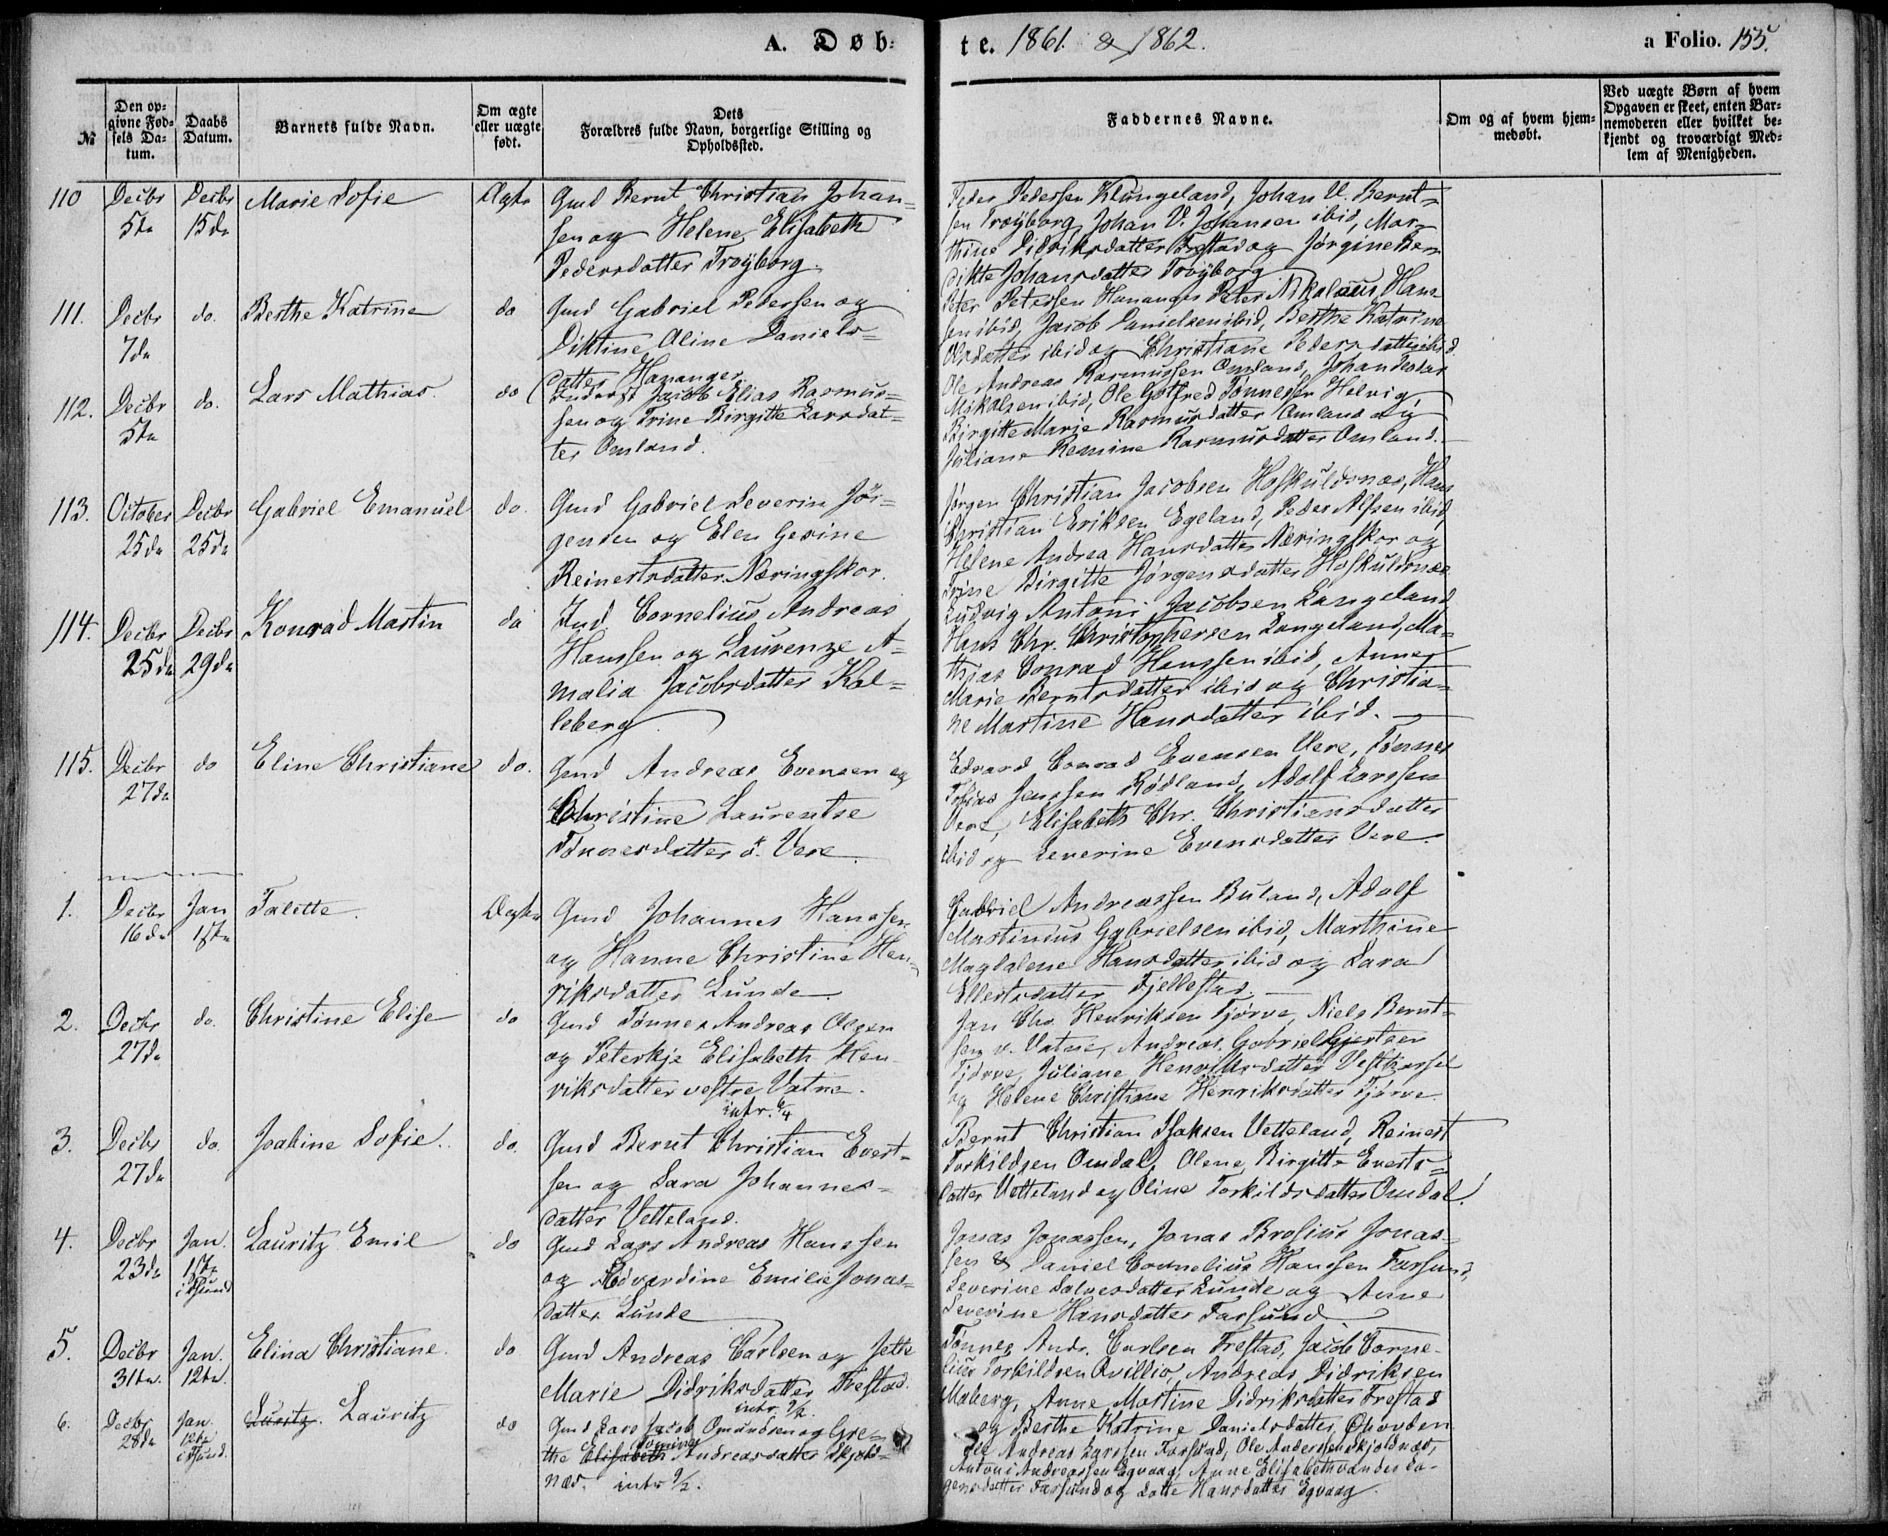 A. Døb-
te. 1861. & 1862.
a Folio. 155.
№
Den op-
givne Fød-
sels Da-
tum.
Daabs
Datum.
Barnets fulde Navn.
Om ægte
eller uægte
født.
Dets
Forældres fulde Navn, borgerlige Stilling og
Opholdssted.
Faddernes Navne.
Om og af hvem hjem-
medøbt.
Ved uægte Børn af hvem
Opgaven er skeet, enten Bar-
nemoderen eller hvilket be-
kjendt og troværdigt Med-
lem af Menigheden.
110 Decbr Decbr Marie Sofie Ægte Gmd Bernt Christian Johan-
5te 15de sen og Helene Elisabeth
Pedersdatter Trøyborg.
Peder Pedersen Klungeland, Johan V. Bernt-
sen Trøyborg, Johan V. Johansen ibid, Mar-
thine Didriksdatter Frestad og Jørgine Ben-
dikte Johansdatter Trøyborg
111. Decbr do. Berthe Katrine do Gmd Gabriel Pedersen og
7de Diktine Oline Daniels-
datter Hananger
Peter Petersen Hananger Peter Nikolaus Han-
sen ibid, Jacob Danielsen ibid, Berthe Katrine
Olsdatter ibid og Christiane Pedersdatter ibid
112. Decbr do. Lars Mathias do Jacob Elias Rasmus-
5te sen og Trine Birgitte Larsdat-
ter Omland.
Ole Andreas Rasmussen Omland, Johan Peder
Mikalsen ibid, Ole Gotfred Tønnesen Helvig,
Birgitte Marie Rasmusdatter Omland og
Juliane Remine Rasmusdatter Omland.
113. October Decbr Gabriel Emanuel do. Gmd Gabriel Severin Jør-
25de 25de gensen og Elen Gesine
Reinertsdatter Næringskor.
Jørgen Christian Jacobsen Hoskuldsnæs, Hans
Christian Eriksen Egeland, Peder Alfsen ibid,
Helene Andrea Hansdatter Næringskor og
Trine Birgitte Jørgensdatter Hoskuldsnæs
114. Decbr Decbr Konrad Martin do Ind. Cornelius Andreas
25de 29de Hanssen og Laurenze A-
malia Jacobsdatter Kal-
leberg
Ludvig Antoni Jacobsen Langeland
Hans Chr. Christophersen Langeland, Ma-
thias Conrad Hanssen ibid, Anne
Marie Berntsdatter ibid og Christia-
ne Martine Hansdatter ibid.
115. Decbr do Eline Christiane do. Gmd Andreas Evensen og
27de Christine Laurentse
Tønnesdatter ø. Vere.
Edvard Conrad Evensen Vere, Tønnes
Tobias Jenssen Rødland, Adolf Larssen
Vere, Elisabeth Chr. Christiansdatter
ibid og Severine Evensdatter Vere.
1. Decbr Jan Talette. Ægte Gmd Johannes Hanssen
16de 1ste og Hanne Christine Hen-
riksdatter Lunde.
Gabriel Andreassen Buland, Adolf
Martinius Gabrielsen ibid, Marthine
Magdalene Hansdatter ibid og Sara
Ellertsdatter Fjellestad.
2. Decbr do. Christine Elise do Gmd Tønnes Andreas Olsen
27de og Peterkje Elisabeth Hen-
riksdatter vestre Vatne.
intr. 6/4
Jan Chr. Henriksen Tjørve, Niels Bernt-
sen v. Vatne, Andreas Gabriel Gjertsen
Tjørve, Juliane Henriksdatter Vestkassel
og Helene Christiane Henriksdatter Tjørve
3. Decbr do. Joakine Sofie. do. Gmd Bernt Christian Evert-
27de sen og Sara Johannes-
datter Vetteland.
Bernt Christian Isaksen Vetteland, Reinert
Torkildsen Omdal, Olene Birgitte Everts-
datter Vetteland og Oline Torkildsdatter Omdal.
4. Decbr Jan. Lauritz Emil do Gmd Lars Andreas Hanssen
23de 1ste og Edvardine Emilie Jonas-
datter Lunde
Jonas Jonassen, Jonas Brosius Jonas-
sen & Daniel Cornelius Hanssen Farsund,
Severine Salvesdatter Lunde og Anne
Severine Hansdatter Farsund
5. Decbr Jan. Elina Christiane. do Gmd Andreas Carlsen og Jette
31te. 12te. Marie Didriksdatter Frestad.
intr. 9/2.
Tønnes Andr. Carlsen Frestad, Jacob Corne-
lius Torkildsen Qvillio, Andreas Didriksen
Maberg, Anne Martine Didriksdatter Frestad
og Berthe Katrine Danielsdatter
6. Decbr Jan. Lauritz. Lauritz do Gmd Lars Jacob Omundsen og Gre-
28de 12te the Elisabeth Andreasdatter Skjold-
næs. intr 9/2.
Ole Andreas Larssen Farsund, Ole Andersen Skjoldnæs,
Antoni Andreassen Egvaag, Anne Elisabeth
Farsund og Lotte Hansdatter Egvaag.